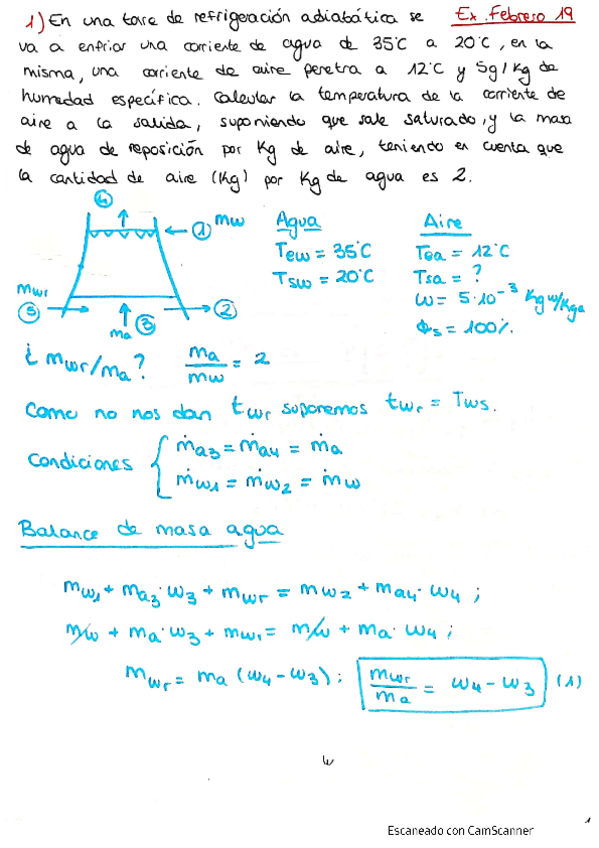 1) En una torre de refrigeración adiabática se Ex. Febrero 19
va a enfriar una corriente de agua de 35°C a 20°C, en la
misma, una corriente de aire penetra a 12°C y 5g/kg de
humedad específica. Calcular la temperatura de la corriente de
aire a la salida, suponiendo que sale saturado, y la masa
de agua de reposición por Kg de aire, teniendo en cuenta que
la cantidad de aire (Kg) por Kg de agua es 2.
4
1 mw
mwr
5
ma
3
2
Agua
Tew = 35°C
Tsw = 20°C
Aire
Tea = 12°C
Tsa = ?
ω = 5·10⁻³ Kgw/Kga
Φs = 100%.
¿ mwr/ma? ma/mw = 2
Como no nos dan twr suponemos twr = Tws.
Condiciones { ṁa3 = ṁa4 = ṁa
ṁw1 = ṁw2 = ṁw
Balance de masa agua
mw1 + ma3·ω3 + mwr = mw2 + ma4·ω4 ;
mw + ma·ω3 + mwr = mw + ma·ω4 ;
mwr = ma (ω4 - ω3) ; mwr/ma = ω4 - ω3 (1)
1
Escaneado con CamScanner